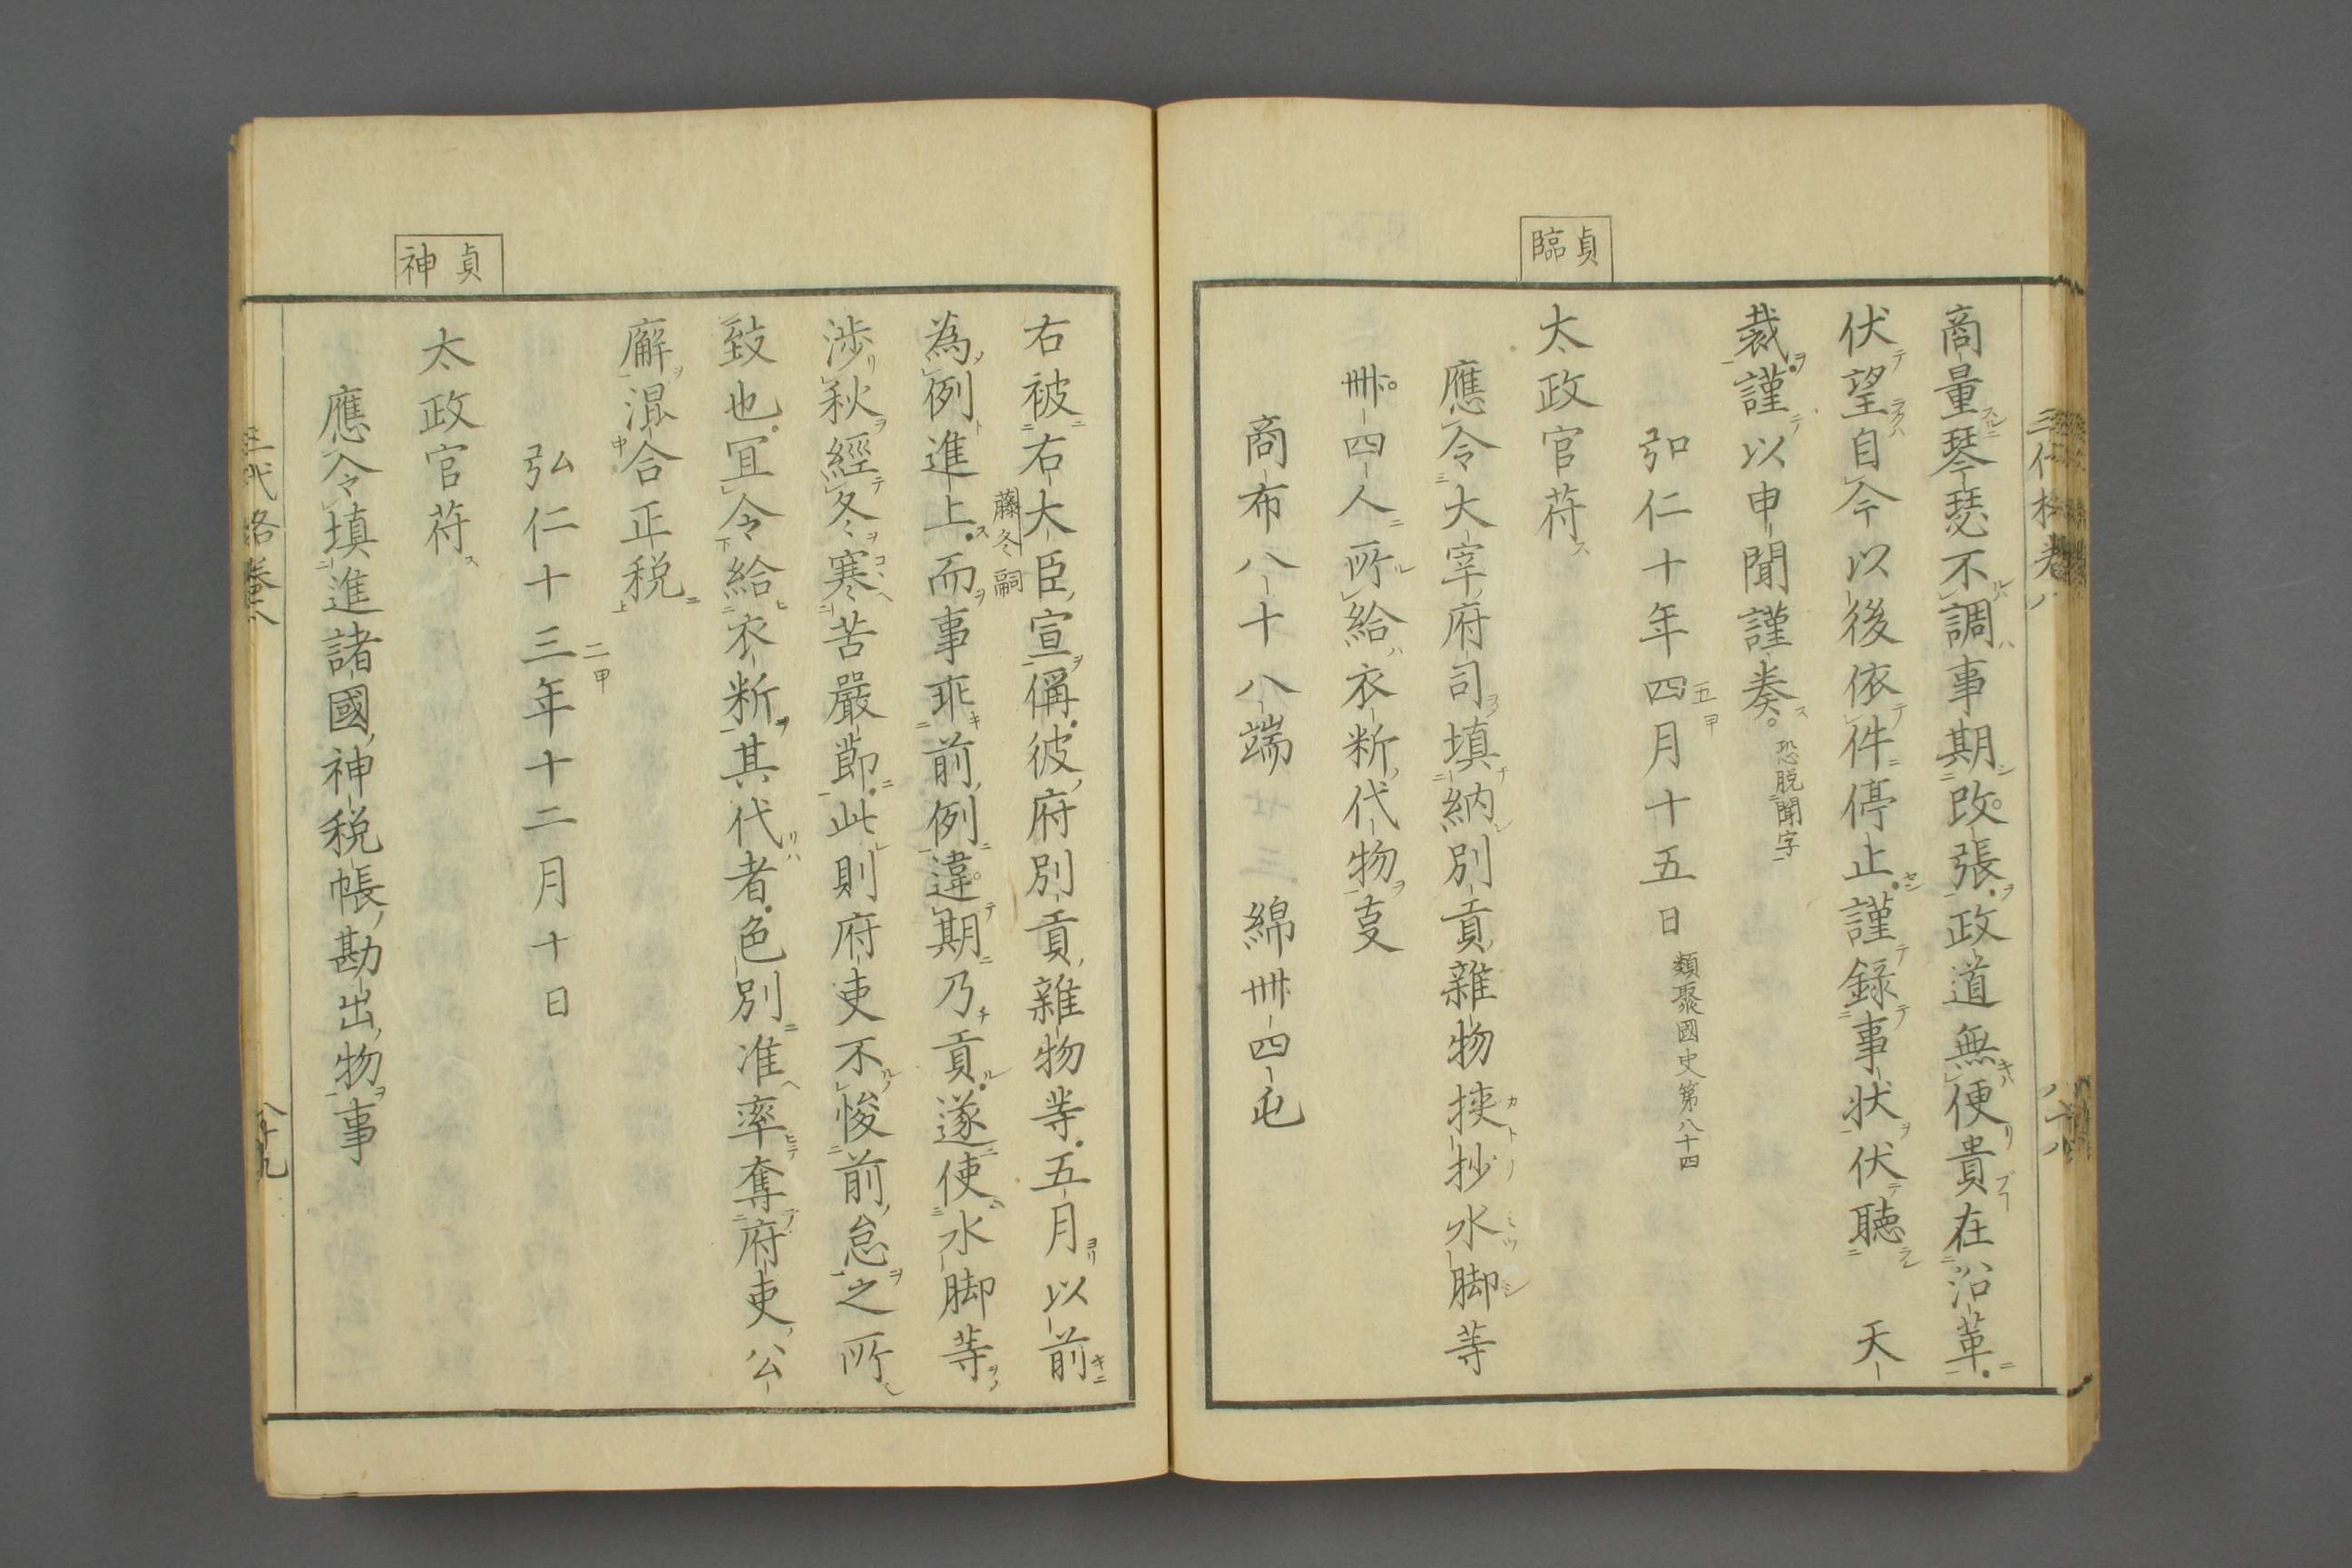 貞臨
商量琴瑟不調事期改張政道無便貴在沿革
伏望自今以後依件停止謹録事状伏聴　天
裁謹以申聞謹奏。恐脱聞字
弘仁十年四月十五日 類聚國史第八十四
五甲
太政官苻
應令大宰府司填納別貢雜物挟抄水脚等
卌四人所給衣断代物叓
商布八十八端　綿卌四屯
貞神
右被右大臣宣偁彼府別貢雜物䒭五月以前
藤冬嗣
為例進上而事乖前例違期乃貢遂使水脚等
渉秋經冬寒苦嚴節此則府吏不悛前怠之所
致也冝令給衣断其代者色別准率奪府吏公
廨混合正税
弘仁十三年十二月十日
二甲
太政官苻
應令填進諸國神税帳勘出物事
三代格巻八
八十九